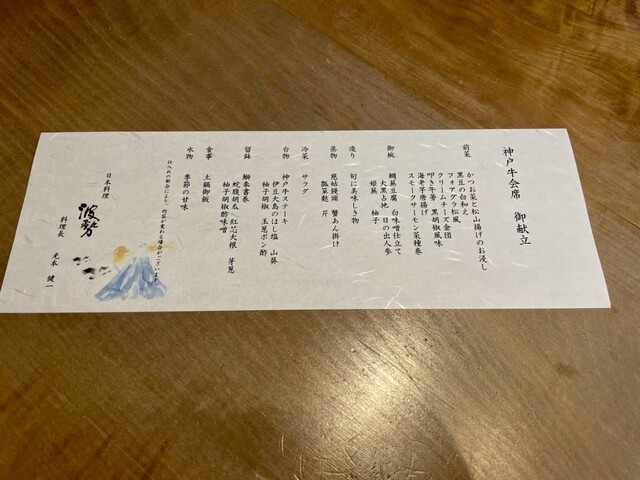 神戸牛会席　御献立
前菜
かつお菜と松山揚げのお浸し
黒豆の白和え
フォアグラ松風
クリームチーズ金団
叩き牛蒡　黒胡椒風味
海老芋唐揚げ
スモークサーモン菜種巻
御椀
鯛蕪豆腐　白味噌仕立て
大黒占地　日の出人参
姫蕪　柚子
造り
旬に美味しき物
蒸物
慈姑饅頭　蟹あん掛け
瓢箪麩　芹
冷菜
サラダ
台物
神戸牛ステーキ
伊豆大島のはし塩　山葵
柚子胡椒　玉葱ポン酢
留鉢
鰤奉書巻
蛇腹胡瓜　紅芯大根　芽葱
柚子胡椒酢味噌
食事
土鍋御飯
水物
季節の甘味
仕入れの都合により、内容が変わる場合がございます。
日本料理
波勢
料理長
光本　健一